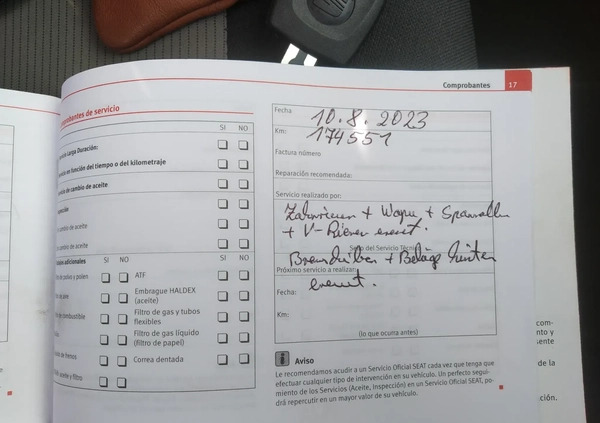 Comprobantes 17
probantes de servicio
SI NO
Larga Duración:
en función del tiempo o del kilometraje
de cambio de aceite
cambio de aceite
cambio de aceite
adicionales SI NO SI NO
de polvo y polen
ATF
Embrague HALDEX
(aceite)
de combustible
Filtro de gas y tubos
flexibles
Filtro de gas líquido
(filtro de papel)
de frenos
Correa dentada
aceite y filtro
Fecha 10.8.2023
Km: 174551
Factura número
Reparación recomendada:
Servicio realizado por:
Zahnriemen + Wapu + Spannrollen
+ V-Riemen erneut.
del Servicio Técnico
Bremsscheiben + Beläge hinten
Próximo servicio a realizar:
erneut.
Fecha:
Km:
(lo que ocurra antes)
i Aviso
Le recomendamos acudir a un Servicio Oficial SEAT cada vez que tenga que
efectuar cualquier tipo de intervención en su vehículo. Un perfecto segui-
miento de los Servicios (Aceite, Inspección) en un Servicio Oficial SEAT, po-
drá repercutir en un mayor valor de su vehículo.
com-
nto y
sente
de la
ción.